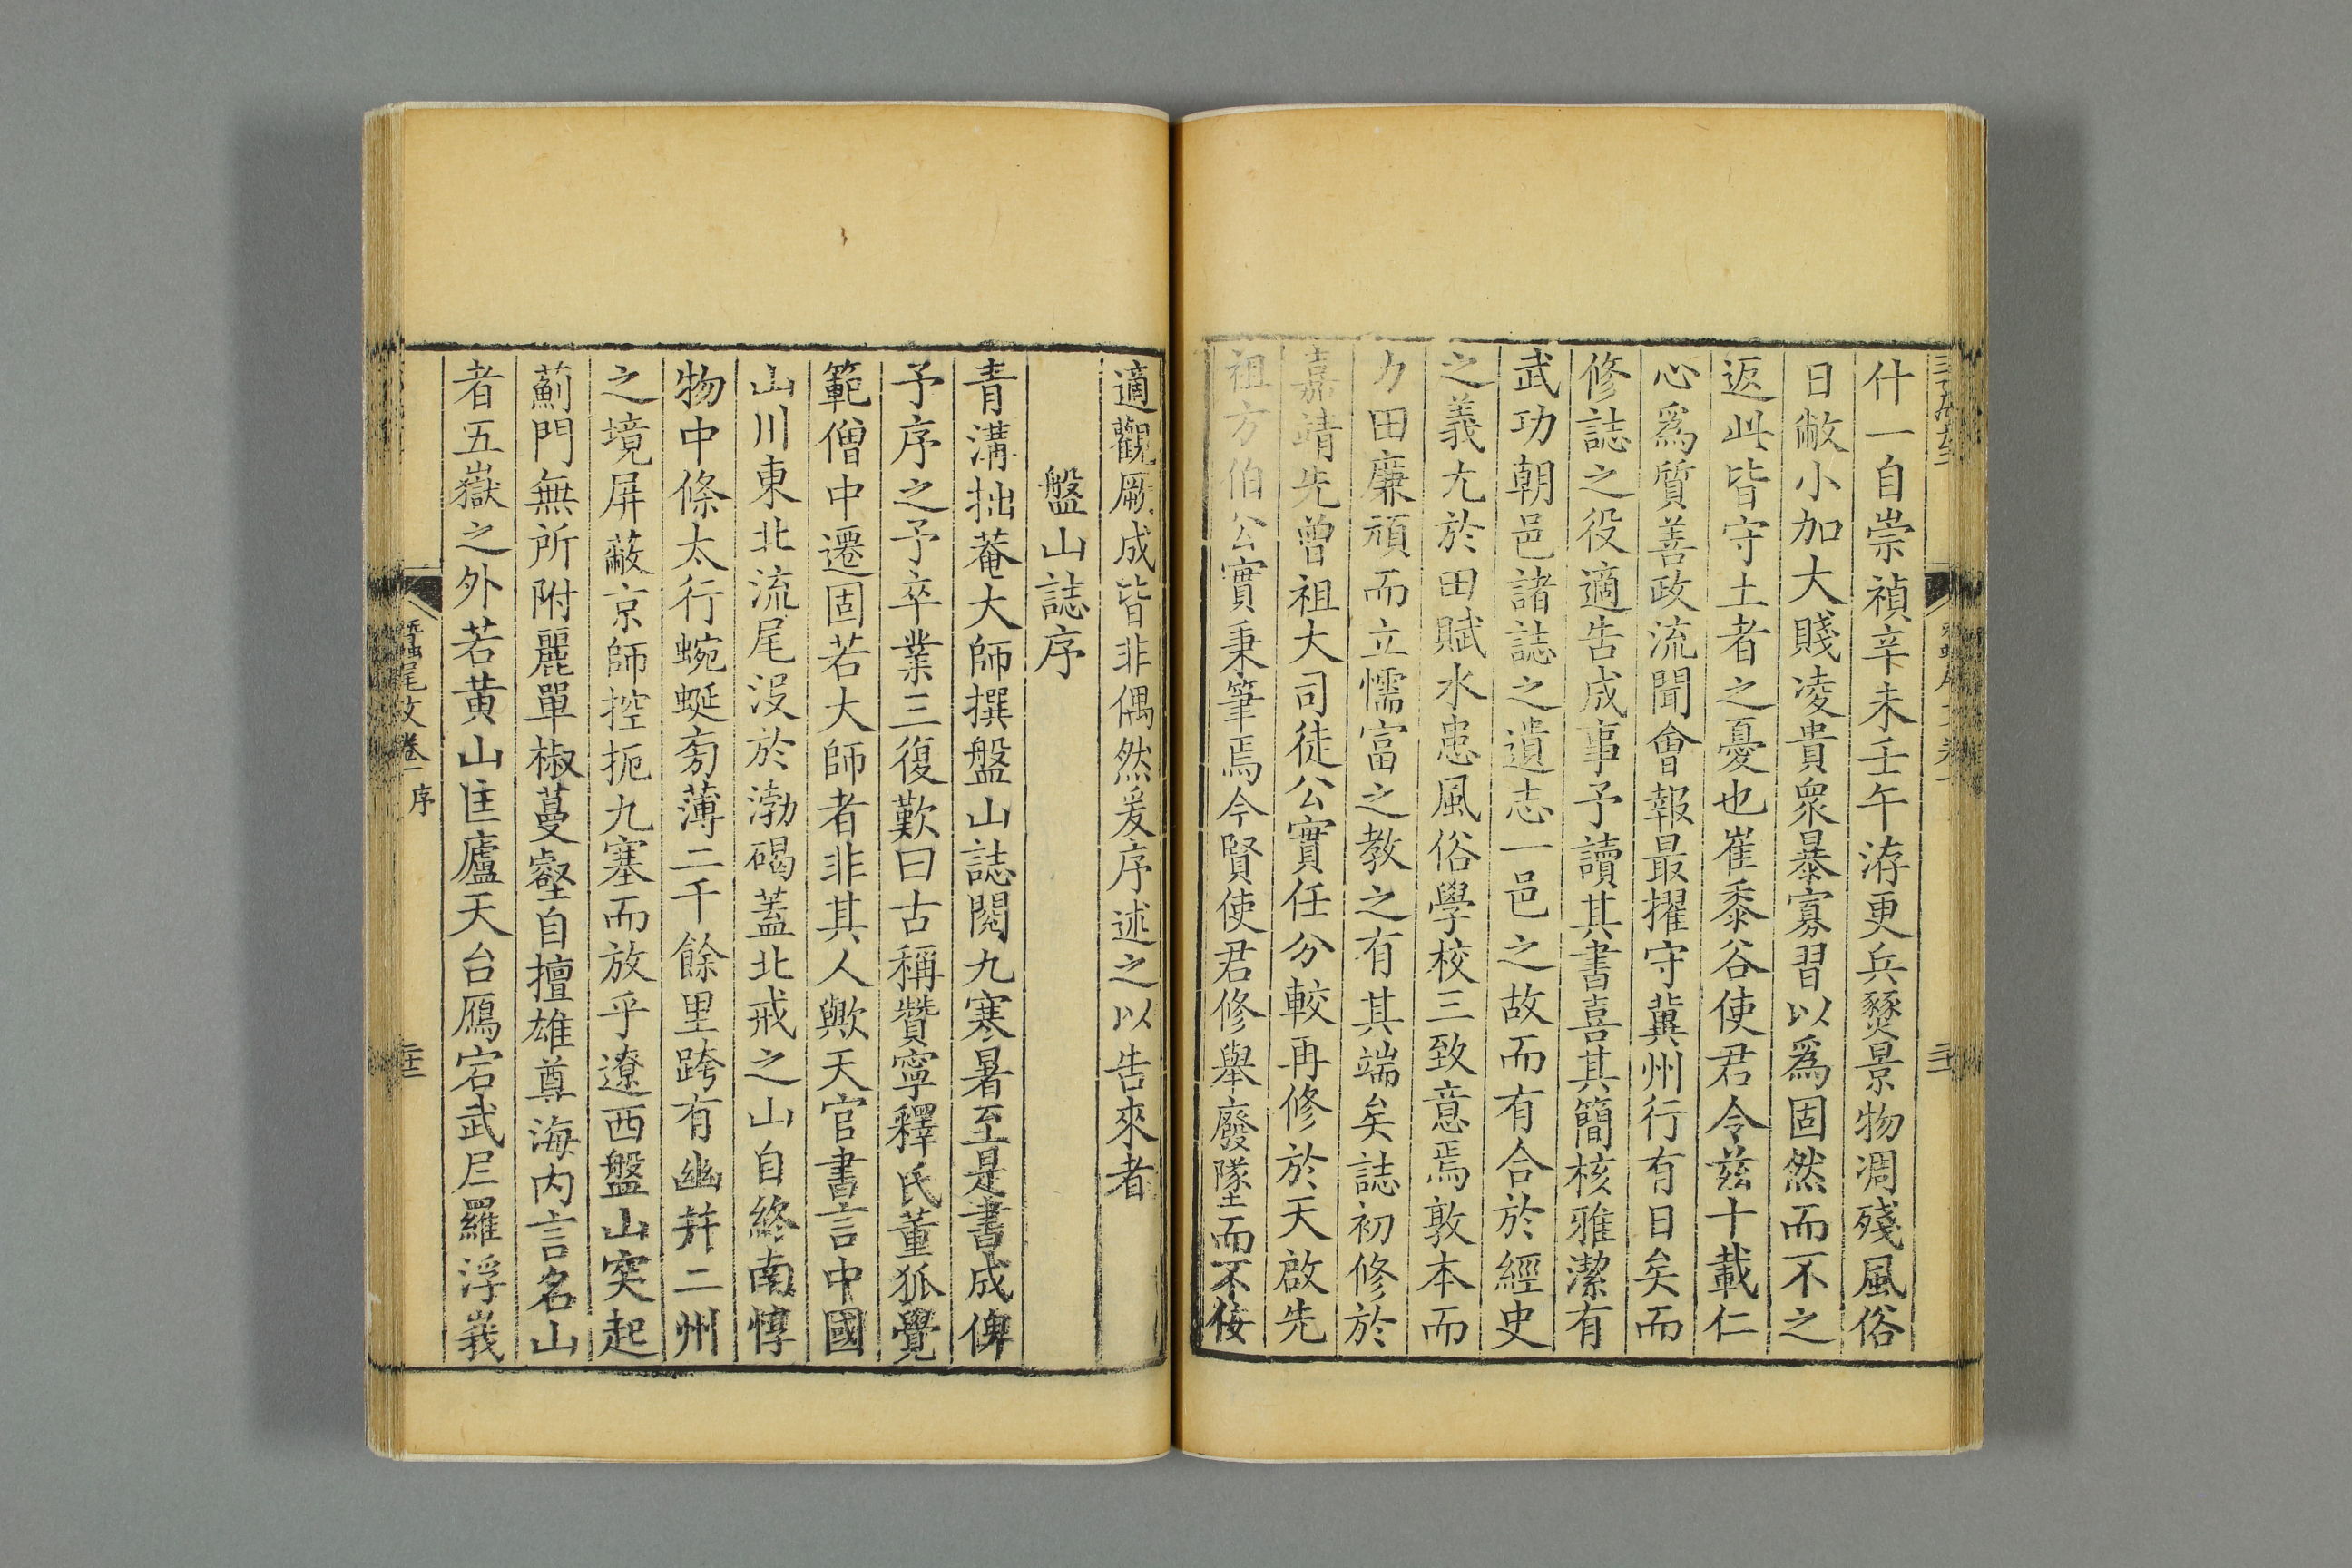 什一自崇禎辛未壬午洊更兵燹景物凋殘風俗
日敝小加大賤凌貴衆暴寡習以爲固然而不之
返此皆守土者之憂也崔黍谷使君令茲十載仁
心爲質善政流聞會報最擢守冀州行有日矣而
修誌之役適告成事予讀其書喜其簡核雅潔有
武功朝邑諸誌之遺志一邑之故而有合於經史
之義尤於田賦水患風俗學校三致意焉敦本而
力田廉頑而立懦富之教之有其端矣誌初修於
嘉靖先曾祖大司徒公實任分較再修於天啟先
祖方伯公實秉筆焉今賢使君修舉廢墜而不佞
適觀厥成皆非偶然爰序述之以告來者
盤山誌序
青溝拙菴大師撰盤山誌閱九寒暑至是書成俾
予序之予卒業三復歎曰古稱贊寧釋氏董狐覺
範僧中遷固若大師者非其人歟天官書言中國
山川東北流尾沒於渤碣蓋北戒之山自終南惇
物中條太行蜿蜒旁薄二千餘里跨有幽并二州
之境屏蔽京師控扼九塞而放乎遼西盤山突起
薊門無所附麗單椒蔓壑自擅雄尊海內言名山
者五嶽之外若黃山匡廬天台鴈宕武尼羅浮峩
蠶尾文卷一 序